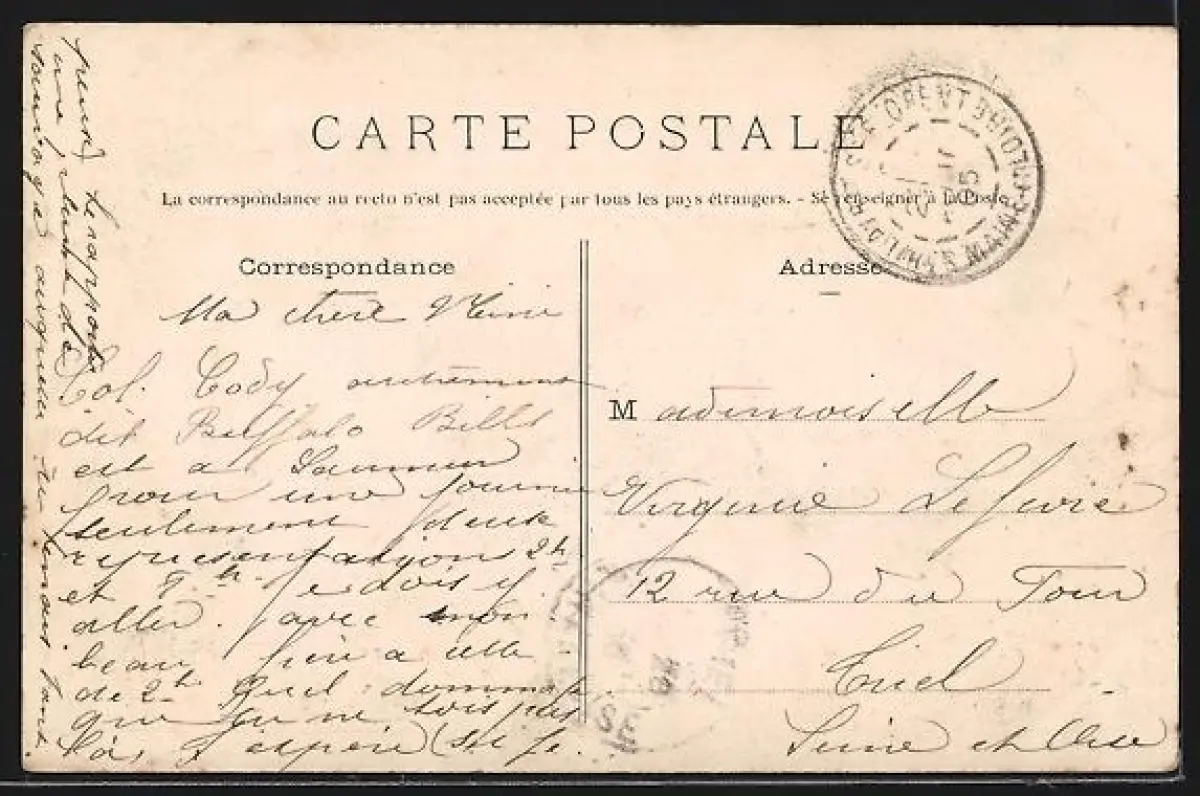 CARTE POSTALE
La correspondance au recto n'est pas acceptée par tous les pays étrangers. - Se renseigner à la Poste
Correspondance
Adresse
Ma chère
Col. Cody autrement
dit Buffalo Bills
est à Saumur
pour une journée
seulement deux
représentations 2h
et 8h. Je dois y
aller avec mon
beau frère à celle
de 2h. Quel dommage
que tu ne sois pas
là, j'espère
Mademoiselle
Virginie Lefèvre
12 rue du Four
Triel
Seine et Oise